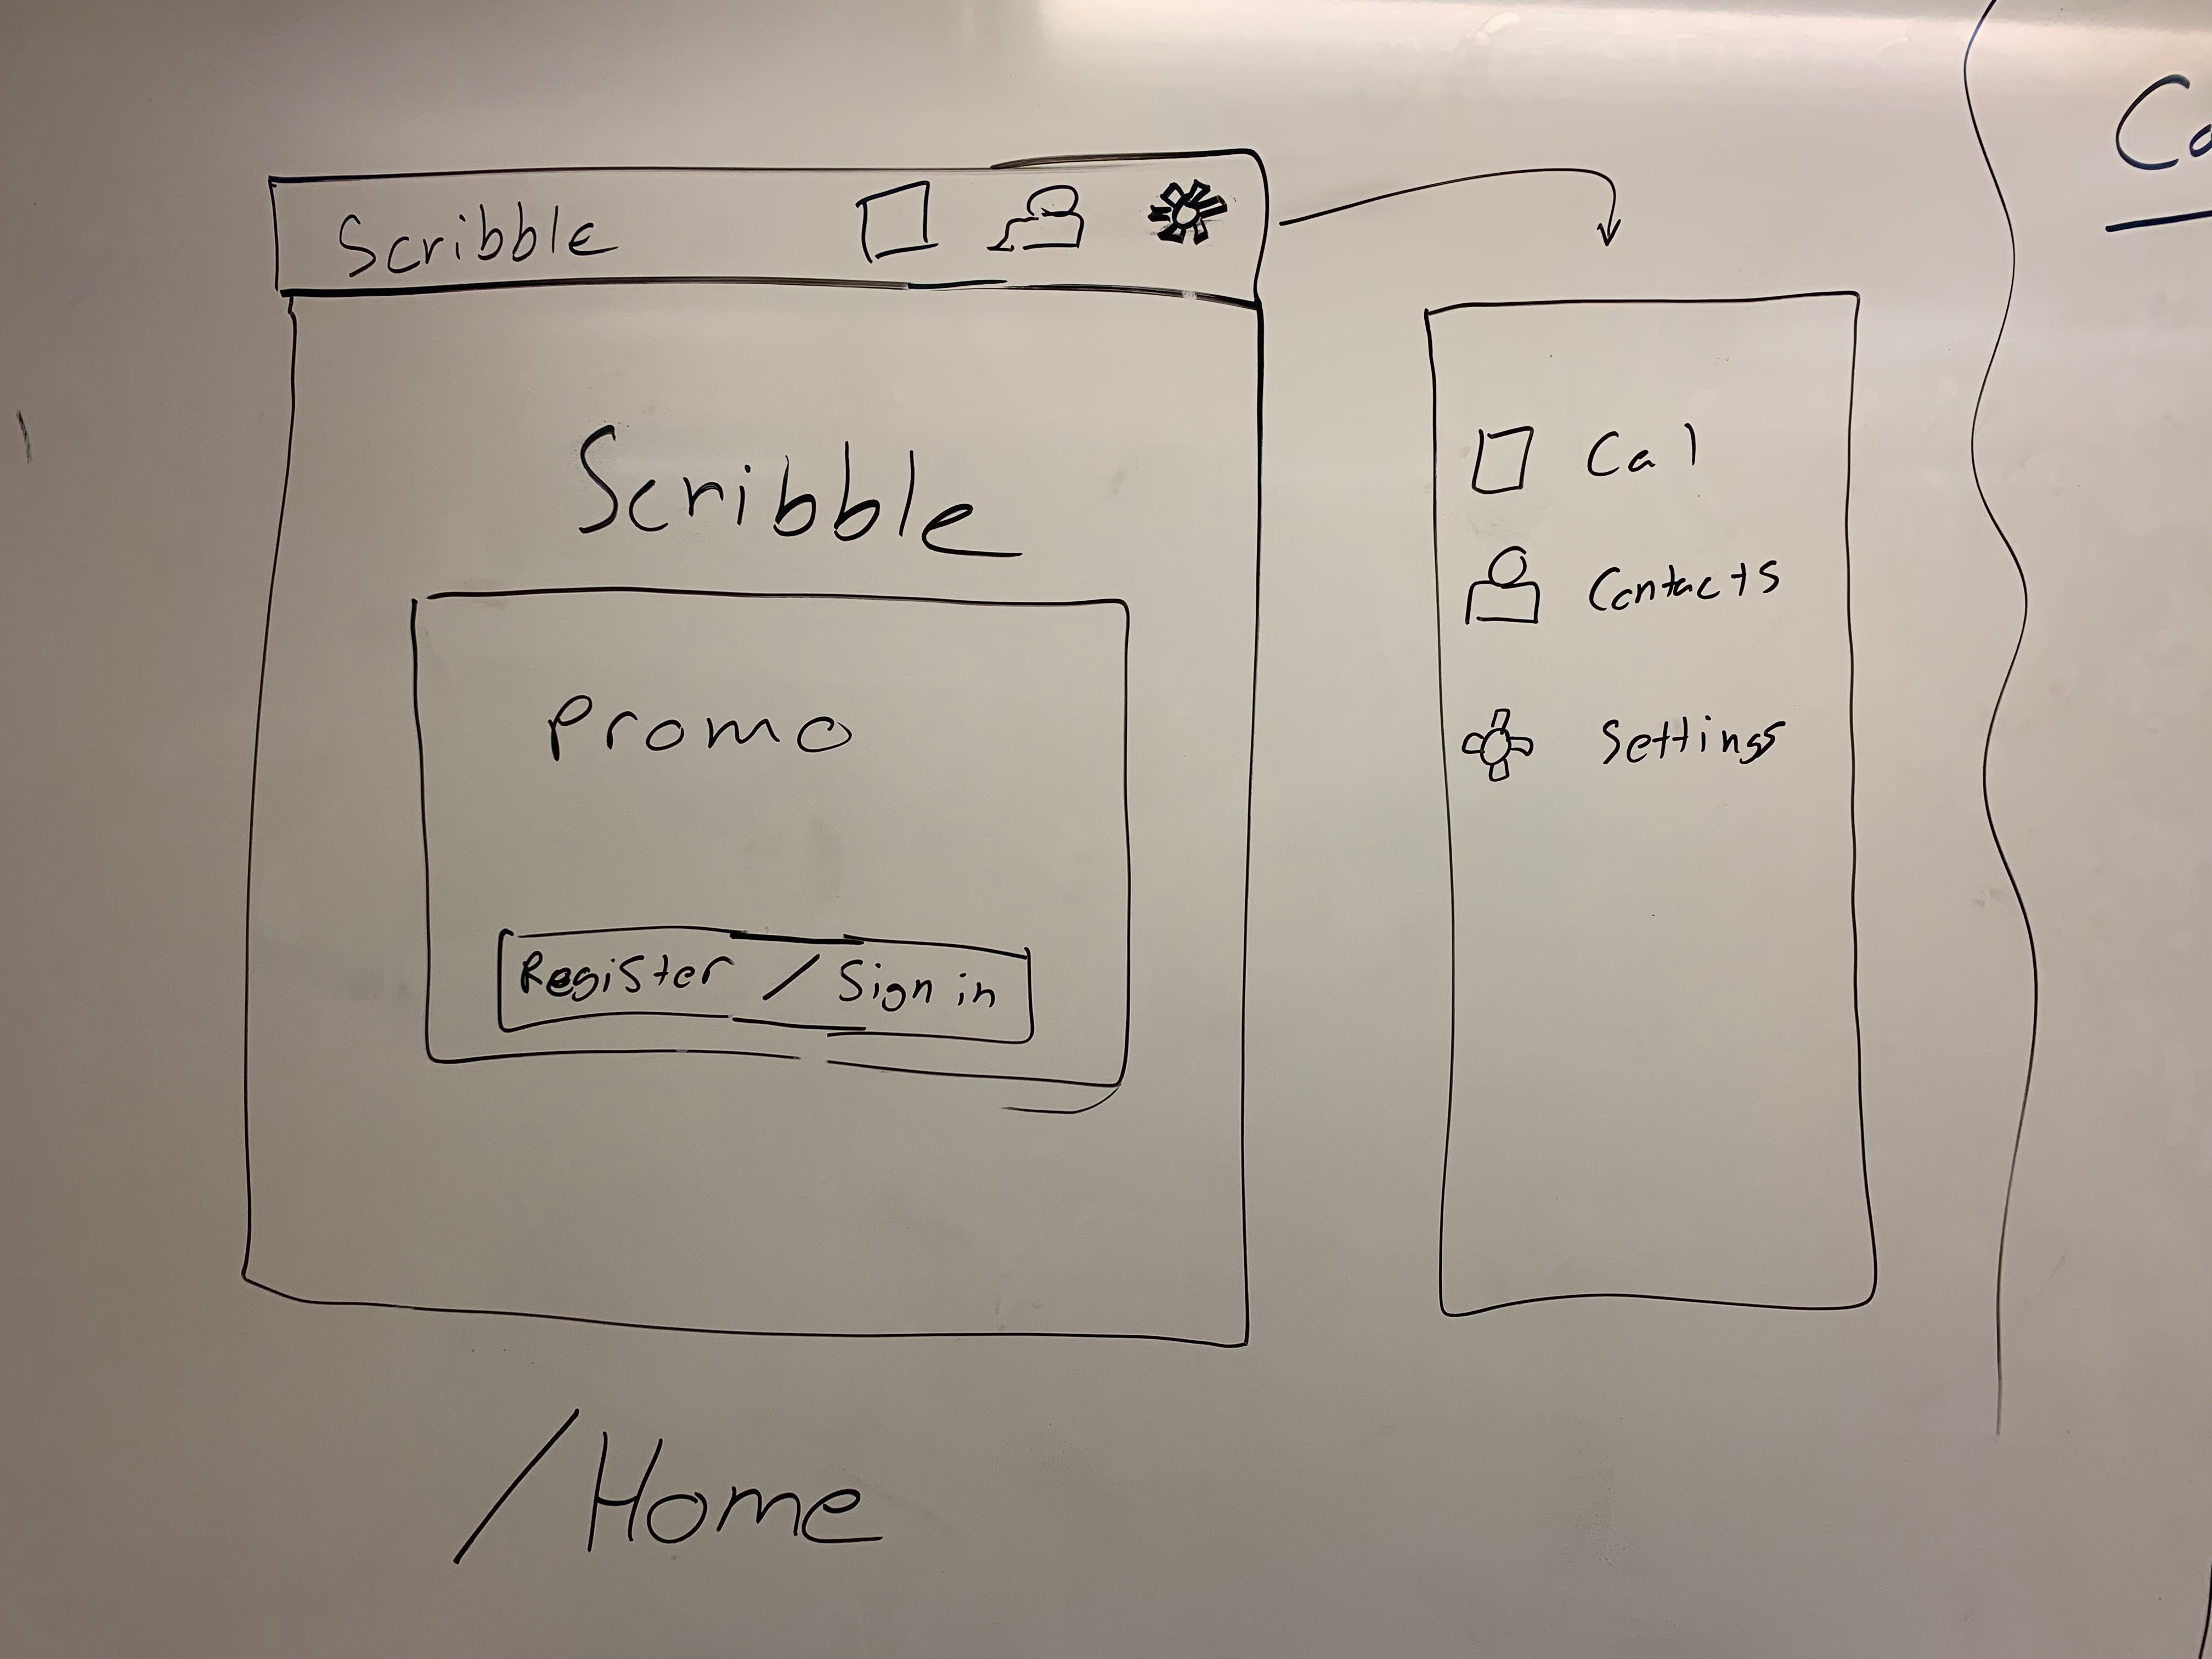 Scribble
Scribble
Promo
Register / Sign in
Cal
Contacts
Settings
/Home